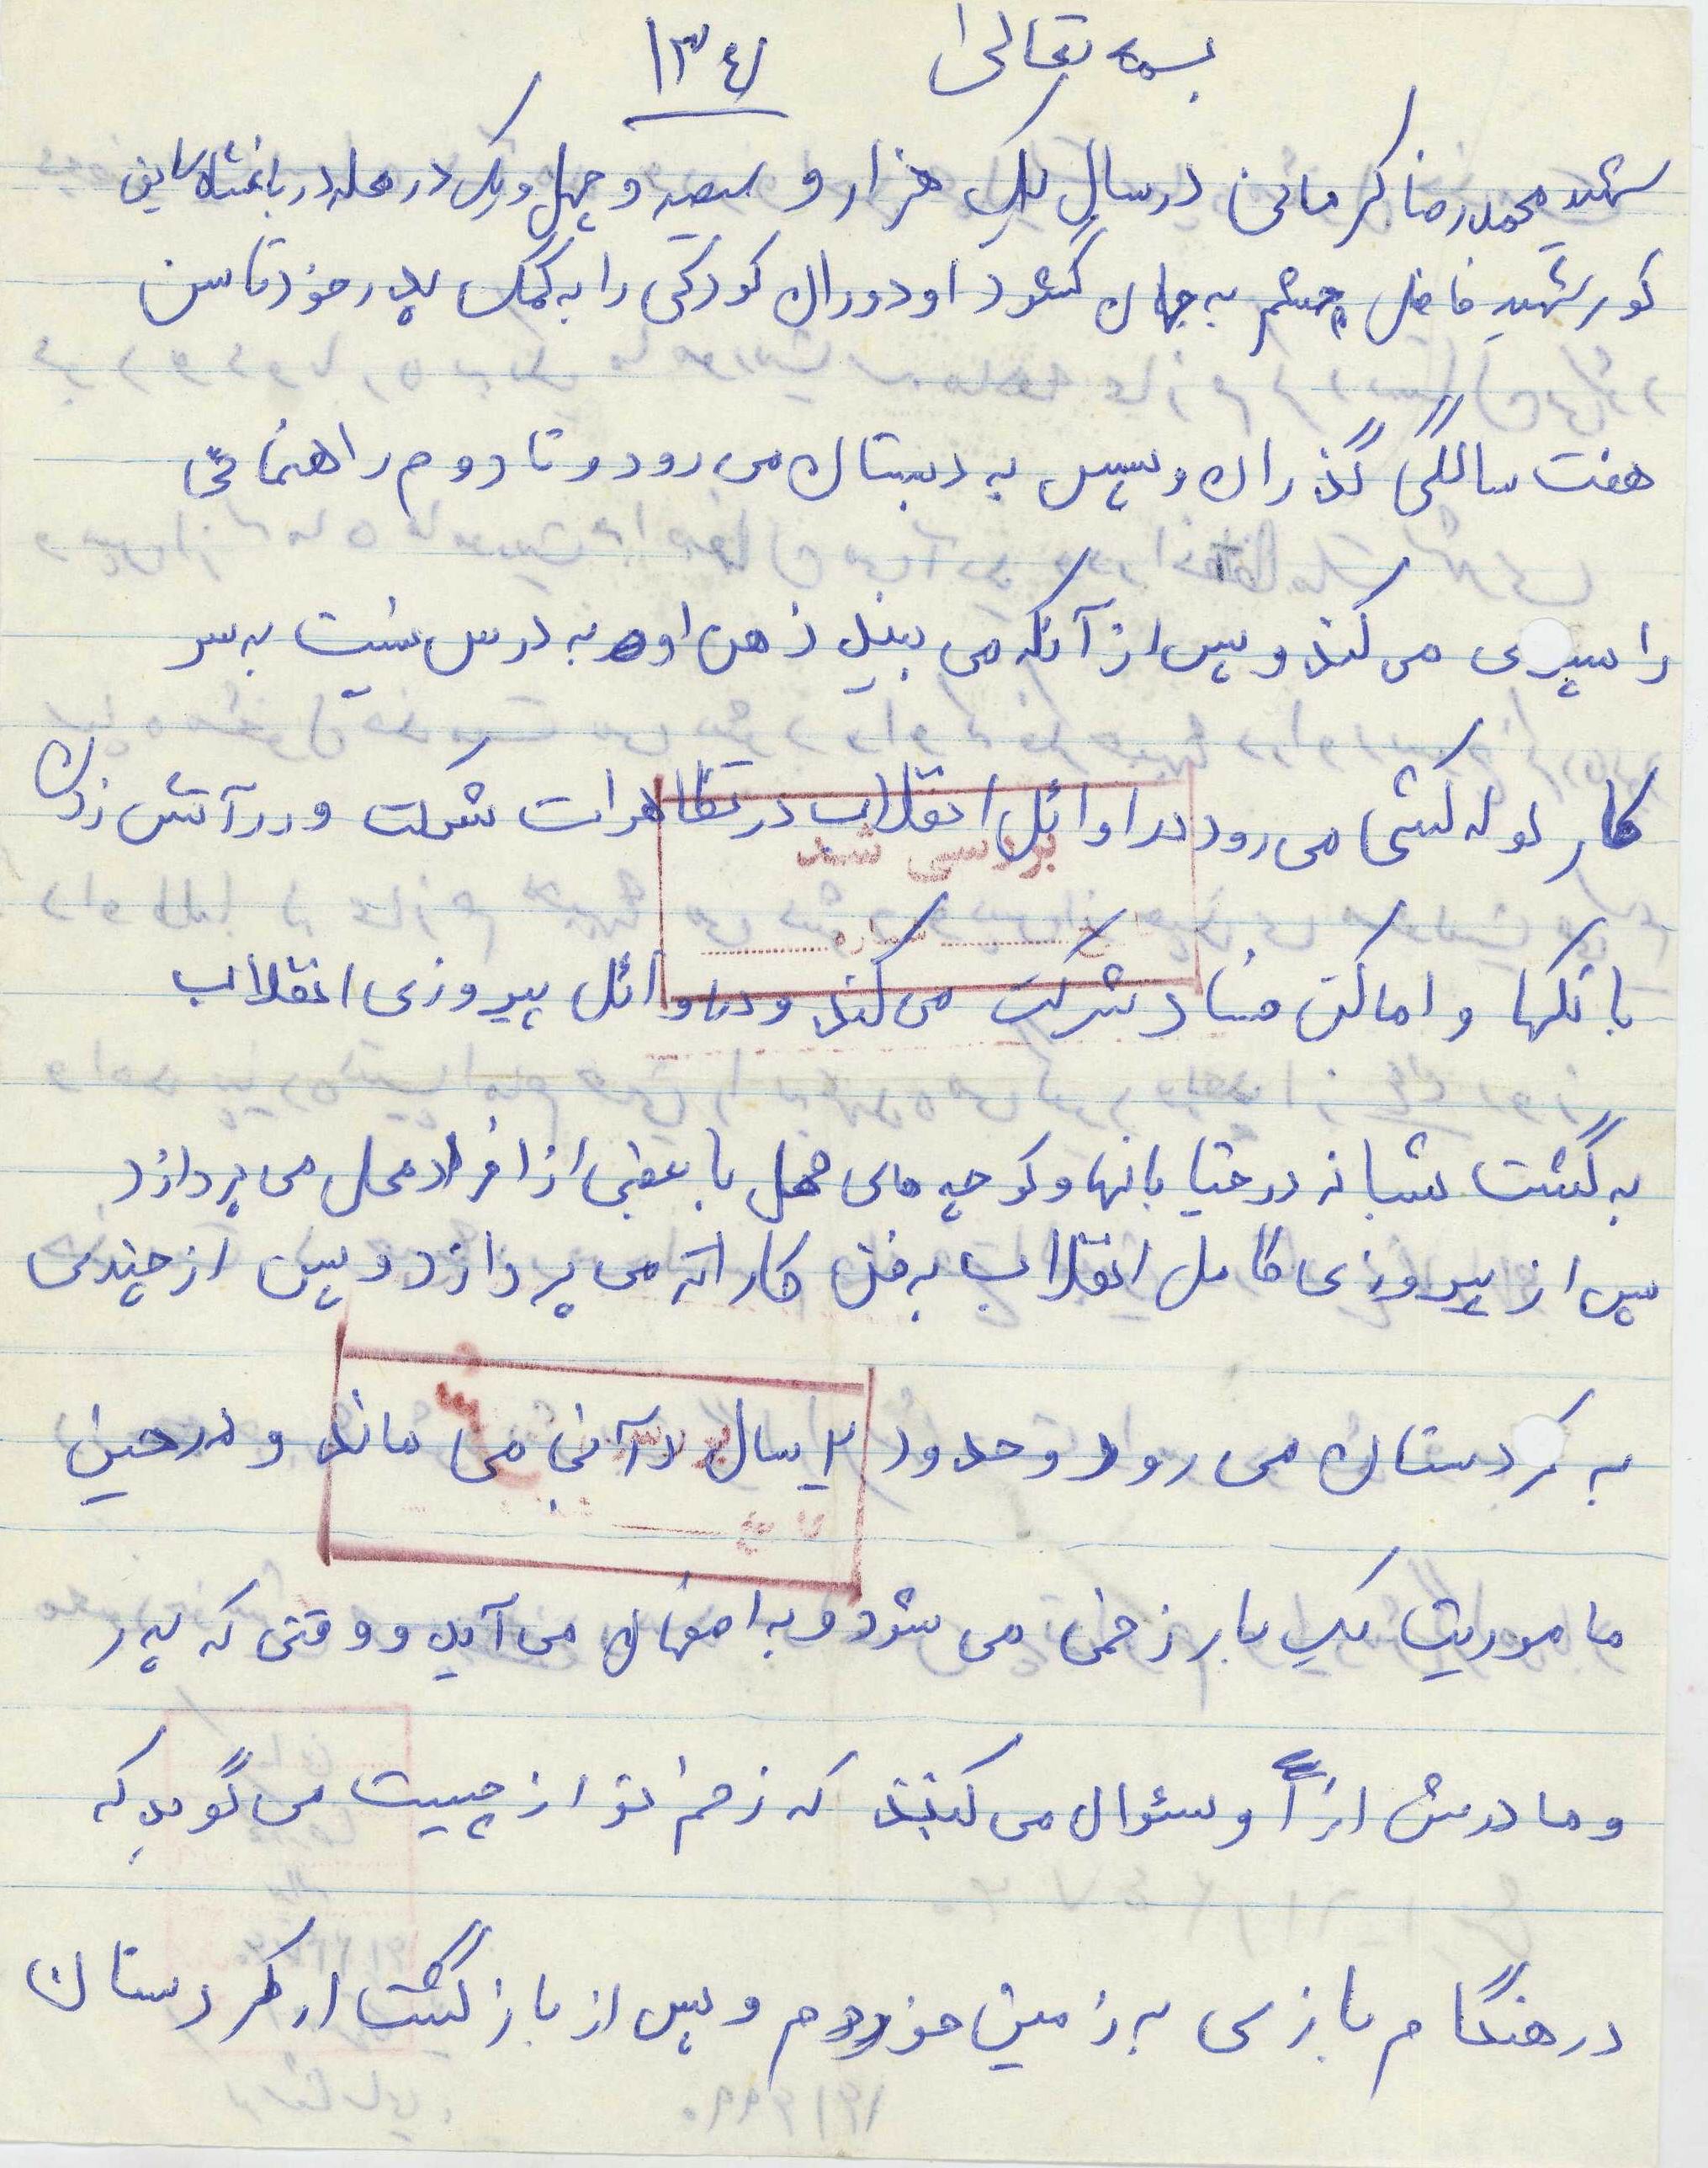 بسمه تعالی ۱۳۴۱
شهید محمدرضا کرمانی در سال یک هزار و سیصد و چهل و یک در محله در باغشاه سابق
کوی شهید فاضل چشم به جهان گشود او دوران کودکی را به کمک پدر خود تا سن
هفت سالگی گذران و سپس به دبستان می رود و تا دوم راهنمائی
را سپری می کند و پس از آنکه می بیند ذهن او به درس نیست به سر
کار لوله کشی می رود در اوائل انقلاب در تظاهرات شرکت و در آتش زدن
بانکها و اماکن فساد شرکت می کند و در اوائل پیروزی انقلاب
به گشت شبانه در خیابانها و کوچه های محل با بعضی از افراد محل می پردازد
پس از پیروزی کامل انقلاب به فن کاراته می پردازد و پس از چندی
به کردستان می رود و حدود ۲ سال در آنجا می ماند و در حین
ماموریت یک بار زخمی می شود و به اصفهان می آید و وقتی که پدر
و مادرش از او سئوال می کنند که زخم تو از چیست می گوید که
در هنگام بازی به زمین خوردم و پس از بازگشت از کردستان
بررسی شد
شماره